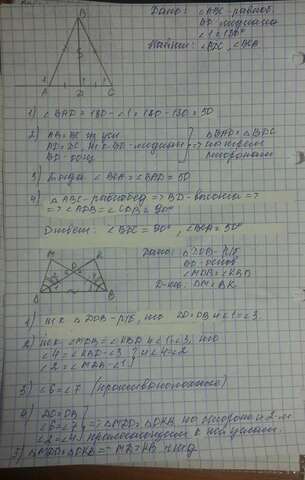 B
A
D
C
Дано: △ABC-равноб.
BD-медиана
∠1=130°
Найти: ∠BDC, ∠BCA
1) ∠BAD=180-∠1=180-130=50
2) AB=BC
BD-медиана
BD-общ
△BAD=△BDC
по трем
сторонам
3) Тогда ∠BCA=∠BAD=50
4) △ABC-равнобед => BD-высота =>
=> ∠ADB=∠CDB=90°
Ответ: ∠BDC=90°, ∠BCA=50°
M
K
O
D
B
Дано: △DOB-р/б
BD-основ
∠MDB=∠KBD
Д-ть: DM=BK
1) т.к △DOB-р/б, то DO=OB и ∠1=∠3
2) т.к ∠MDB=∠KBD и ∠1=∠3, то
∠4=∠KBD-∠3
∠2=∠MDB-∠1
∠4=∠2
3) ∠6=∠7
4) DO=OB
∠6=∠7
∠2=∠4
=> △MDO=△OKB по стороне и 2-м
прилежащим к ней углам.
5) △MDO=△OKB =>